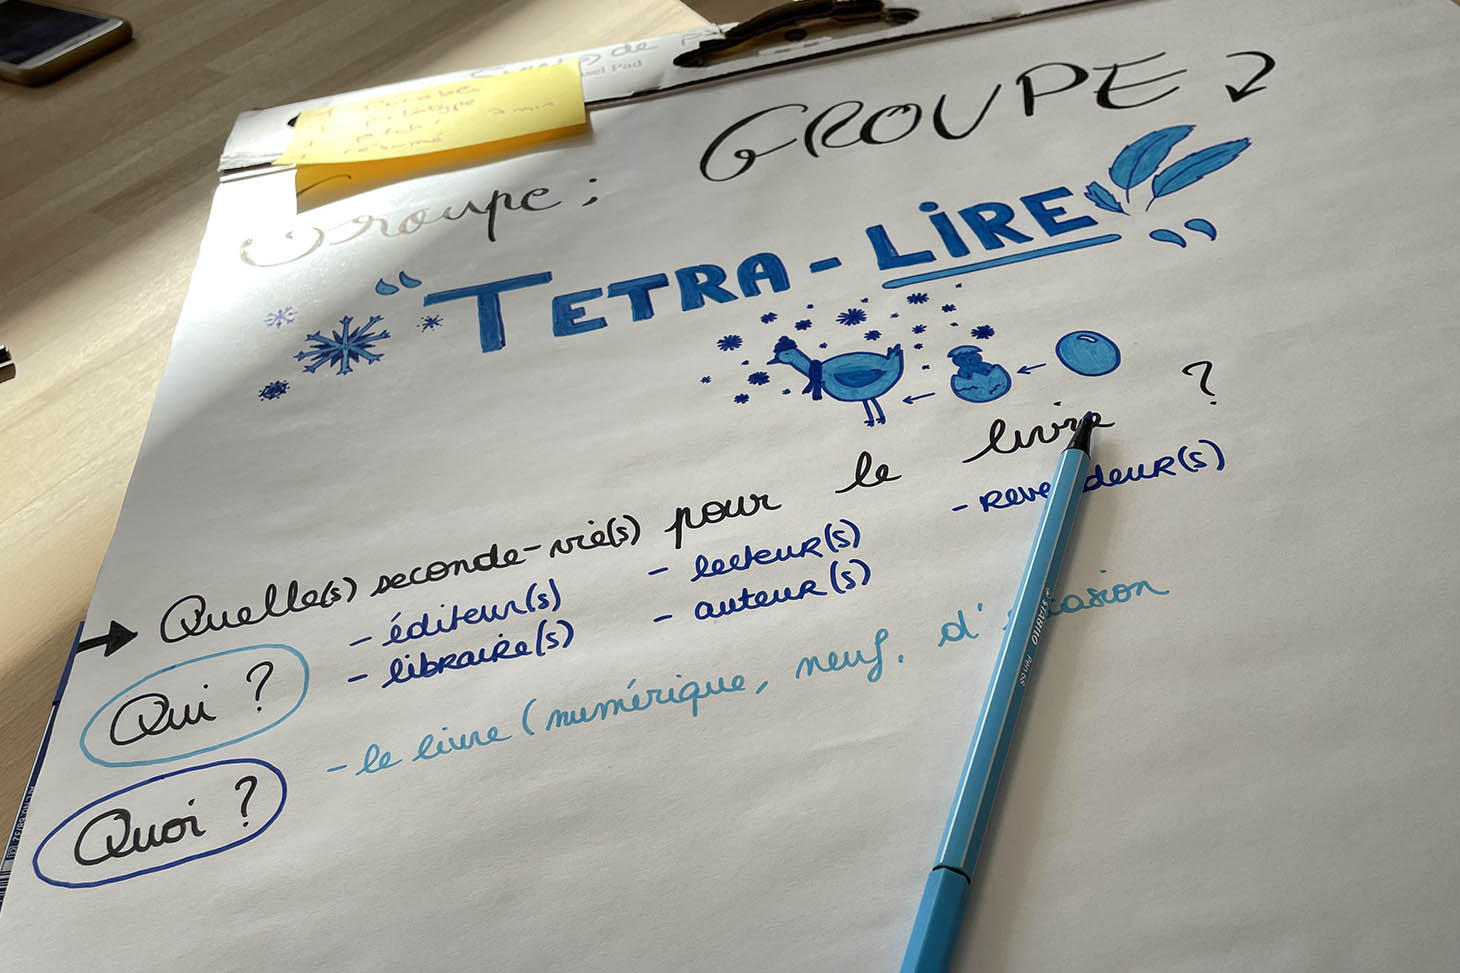 GROUPE
Groupe :
" TETRA-LIRE "
Quelle(s) seconde-vie(s) pour le livre ?
Qui ?
- éditeur(s)
- libraire(s)
- lecteur(s)
- auteur(s)
- revendeur(s)
Quoi ?
- le livre (numérique, neuf, d'occasion
STABILO Pen 68